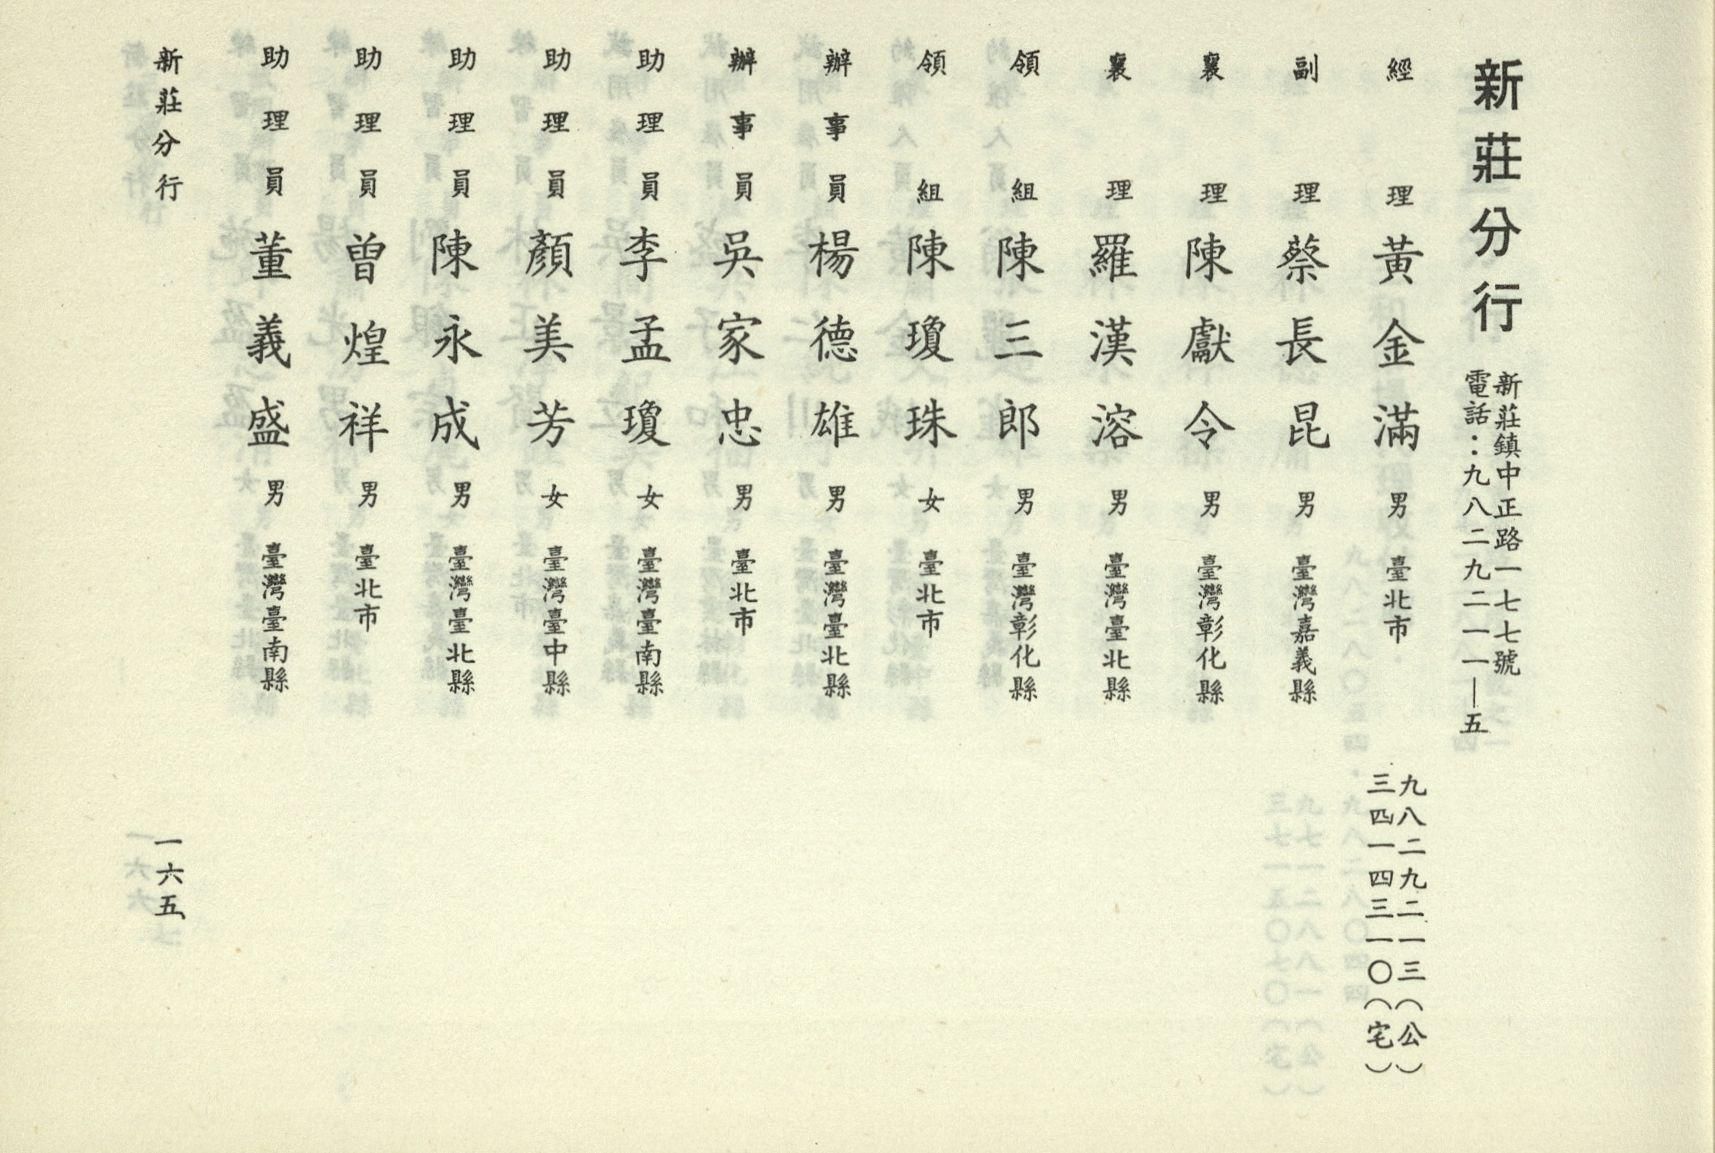 新莊分行
新莊鎮中正路一七七號
電話：九八二九二一一—五
經理 黃金滿 男 臺北市 九八二九二一三（公）
三四一四三一〇（宅）
副理 蔡長昆 男 臺灣嘉義縣
襄理 陳獻令 男 臺灣彰化縣
襄理 羅漢溶 男 臺灣臺北縣
領組 陳三郎 男 臺灣彰化縣
領組 陳瓊珠 女 臺北市
辦事員 楊德雄 男 臺灣臺北縣
辦事員 吳家忠 男 臺北市
助理員 李孟瓊 女 臺灣臺南縣
助理員 顏美芳 女 臺灣臺中縣
助理員 陳永成 男 臺灣臺北縣
助理員 曾煌祥 男 臺北市
助理員 董義盛 男 臺灣臺南縣
新莊分行
一六五